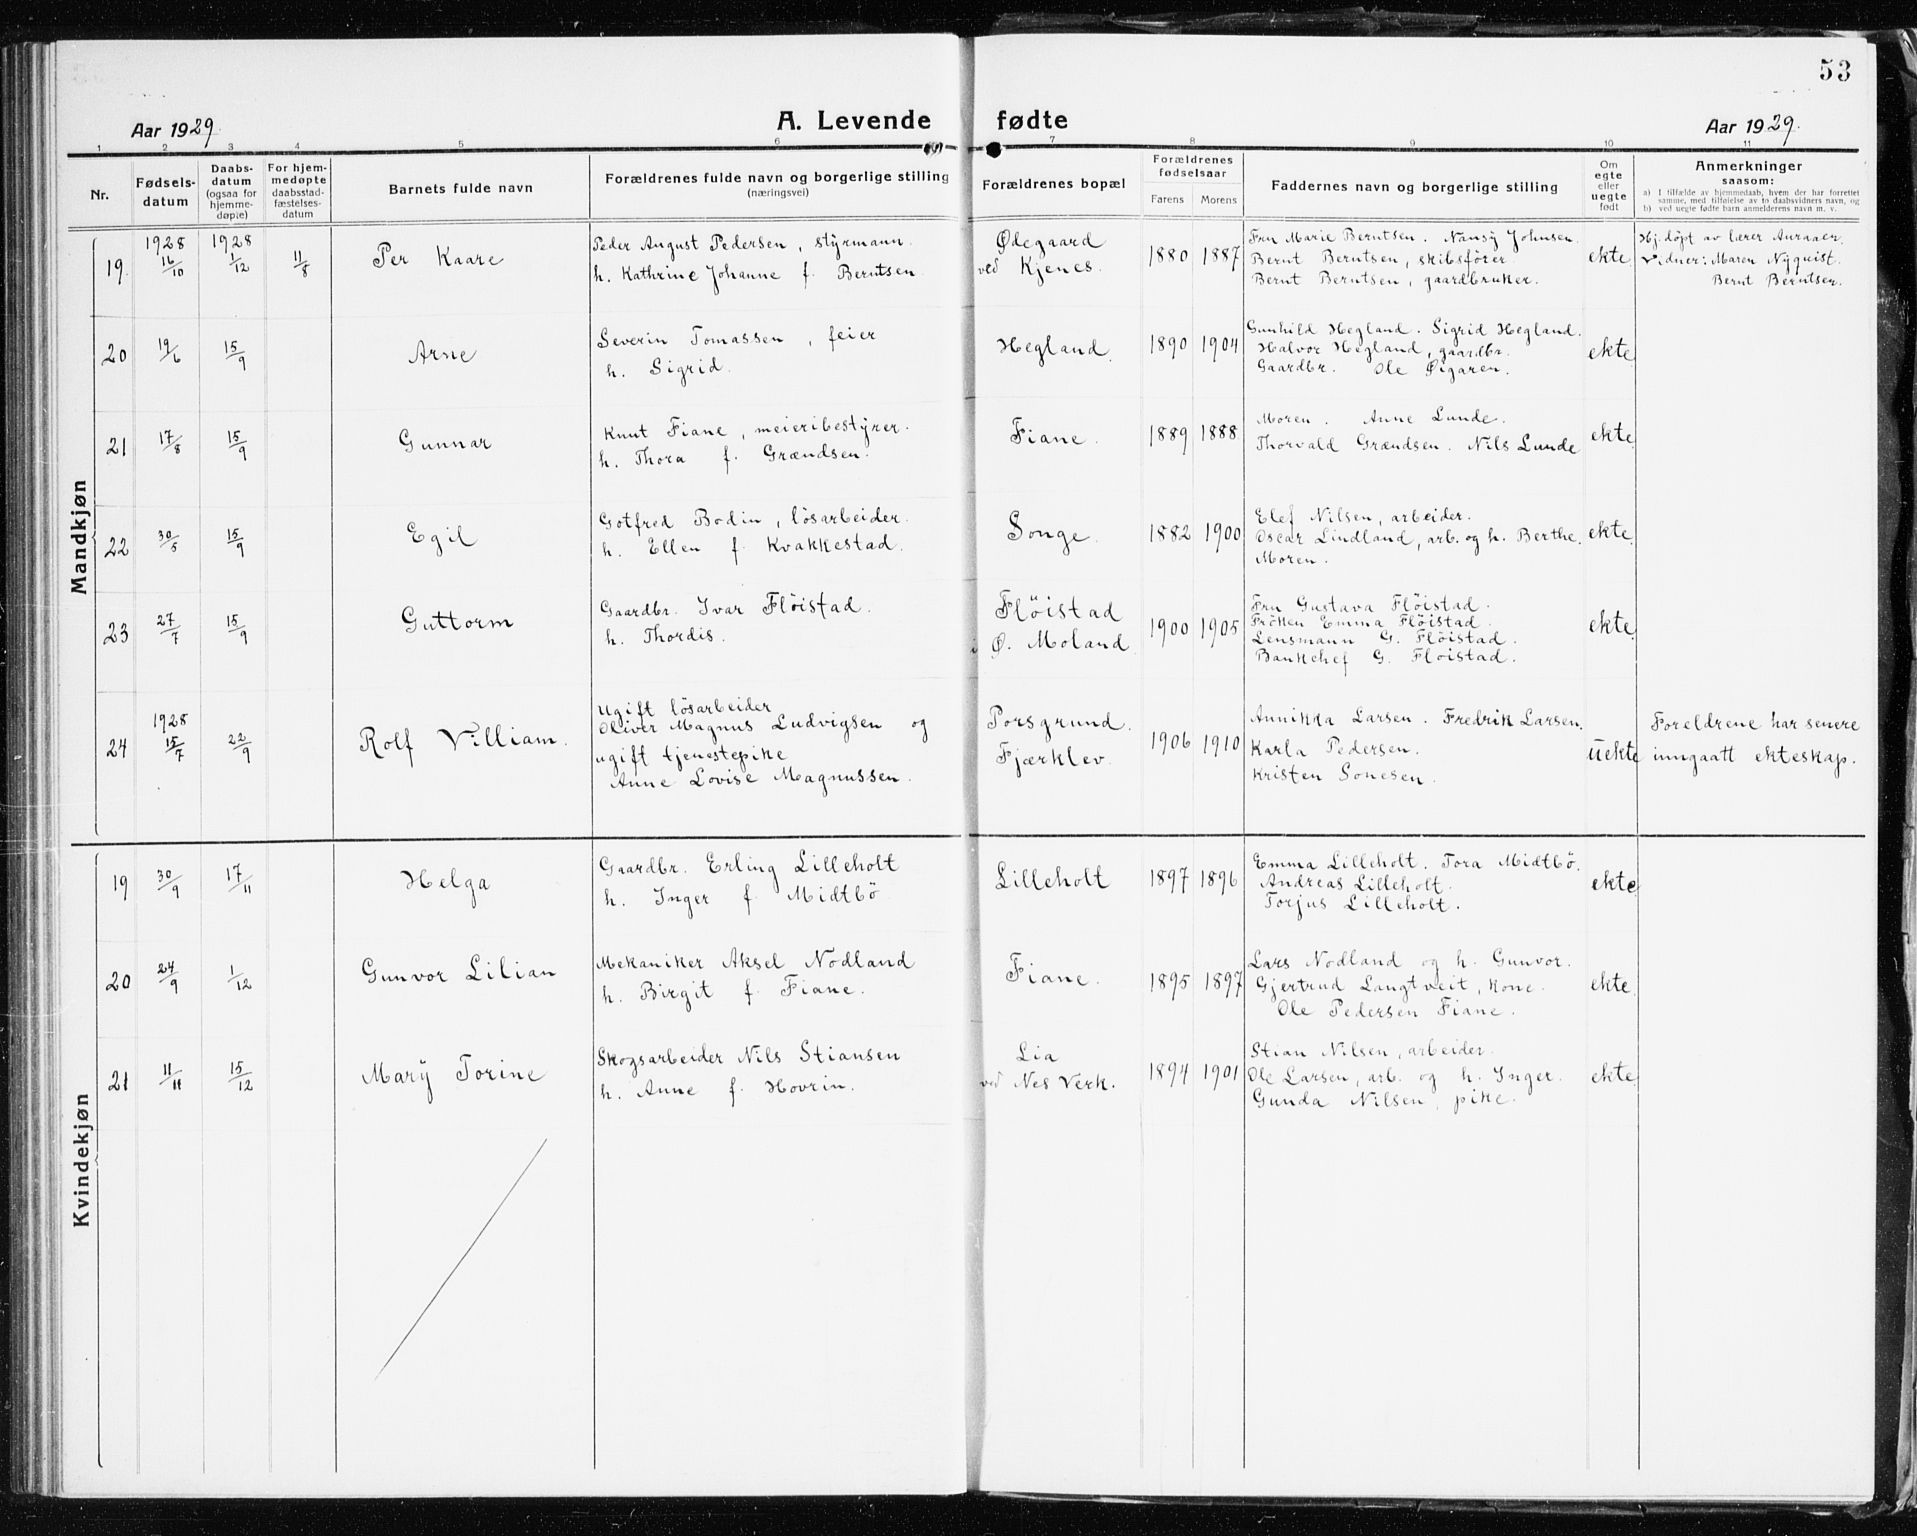 53
Aar 1929.
A. Levende fødte
Aar 1929.
1 2 3 4 5 6 7 8 9 10 11
Nr.
Fødsels-
datum
Daabs-
datum
(ogsaa for
hjemme-
døpte)
For hjem-
medøpte
daabsstad-
fæstelses-
datum
Barnets fulde navn
Forældrenes fulde navn og borgerlige stilling
(næringsvei)
Forældrenes bopæl
Forældrenes
fødselsaar
Farens Morens
Faddernes navn og borgerlige stilling
Om
egte
eller
uegte
født
Anmerkninger
saasom:
a) I tilfælde av hjemmedaab, hvem der har forrettet
samme, med tilføielse av to daabsvidners navn, og
b) ved uegte fødte barn anmelderens navn m. v.
Mandkjøn
19. 1928 16/10 1928 1/12 11/8 Per Kaare
Peder August Pedersen, styrmann.
h. Kathrine Johanne f. Berntsen
Ødegaard
ved Kjenes.
1880 1887
Fru Marie Berntsen. Nansy Johnsen.
Bernt Berntsen, skibsfører.
Bernt Berntsen, gaardbruker.
ekte.
Hj.døpt av lærer Auraaer.
Vidner: Maren Nyquist.
Bernt Berntsen.
20 19/6 15/9 Arne
Severin Tomassen, feier
h. Sigrid.
Hegland.
1890 1904
Gunhild Hegland. Sigrid Hegland.
Halvor Hegland, gaardbr.
Gaardbr. Ole Øigaren.
ekte.
21 17/8 15/9 Gunnar
Knut Fiane, meieribestyrer.
h. Thora f. Grændsen.
Fiane.
1889 1888
Moren. Anne Lunde.
Thorvald Grændsen. Nils Lunde
ekte.
22 30/5 15/9 Egil
Gotfred Bodin, løsarbeider.
h. Ellen f. Kvakkestad.
Songe.
1882 1900
Elef Nilsen, arbeider.
Oscar Lindland, arb. og h. Berthe.
Moren.
ekte.
23 27/7 15/9 Guttorm
Gaardbr. Ivar Fløistad.
h. Thordis.
Fløistad
i Ø. Moland.
1900 1905
Fru Gustava Fløistad.
Frøken Emma Fløistad.
Lensmann G. Fløistad.
Bankchef G. Fløistad.
ekte.
24 1928 15/7 22/9 Rolf Villiam.
Ugift løsarbeider
Oliver Magnus Ludvigsen og
ugift tjenestepike
Anne Lovise Magnussen.
Porsgrund.
Fjærklev.
1906 1910
Annikka Larsen. Fredrik Larsen.
Karla Pedersen.
Kristen Sonesen.
uekte
Foreldrene har senere
inngaatt ekteskap.
Kvindekjøn
19 30/9 17/11 Helga
Gaardbr. Erling Lilleholt
h. Inger f. Midtbö
Lilleholt
1897 1896
Emma Lilleholt. Tora Midtbö.
Andreas Lilleholt.
Torjus Lilleholt.
ekte
20 24/9 1/12 Gunvor Lilian
Mekaniker Aksel Nodland
h. Birgit f. Fiane.
Fiane.
1895 1897
Lars Nodland og h. Gunvor.
Gjertrud Langtveit, kone.
Ole Pedersen Fiane.
ekte.
21 11/11 15/12 Mary Torine
Skogsarbeider Nils Stiansen
h. Anne f. Hovrin.
Lia
ved Nes Verk.
1894 1901
Stian Nilsen, arbeider.
Ole Larsen, arb. og h. Inger.
Gunda Nilsen, pike.
ekte